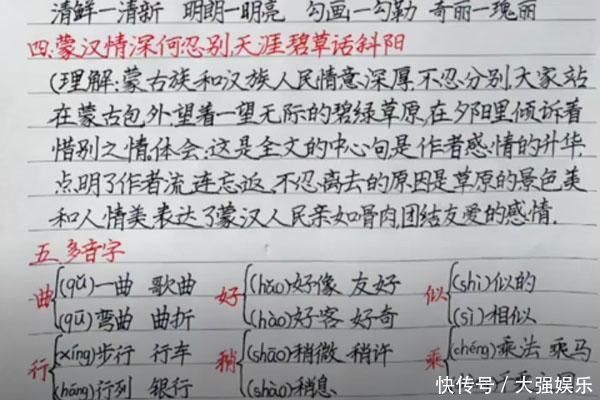 清鲜—清新 明朗—明亮 勾画—勾勒 奇丽—瑰丽
四.蒙汉情深何忍别,天涯碧草话斜阳
(理解:蒙古族和汉族人民情意深厚.不忍分别.大家站
在蒙古包外,望着一望无际的碧绿草原,在夕阳里倾诉着
惜别之情.体会:这是全文的中心句,是作者感情的升华.
点明了作者流连忘返、不忍离去的原因是草原的景色美
和人情美.表达了蒙汉人民亲如骨肉团结友爱的感情.
五.多音字
曲 (qǔ)一曲 歌曲 好 (hǎo)好像 友好 似 (shì)似的
(qū)弯曲 曲折 (hào)好客 好奇 (sì)相似
行 (xíng)步行 行车 稍 (shāo)稍微 稍许 乘 (chéng)乘法 乘马
(háng)行列 银行 (shào)稍息
快传号/大强娱乐